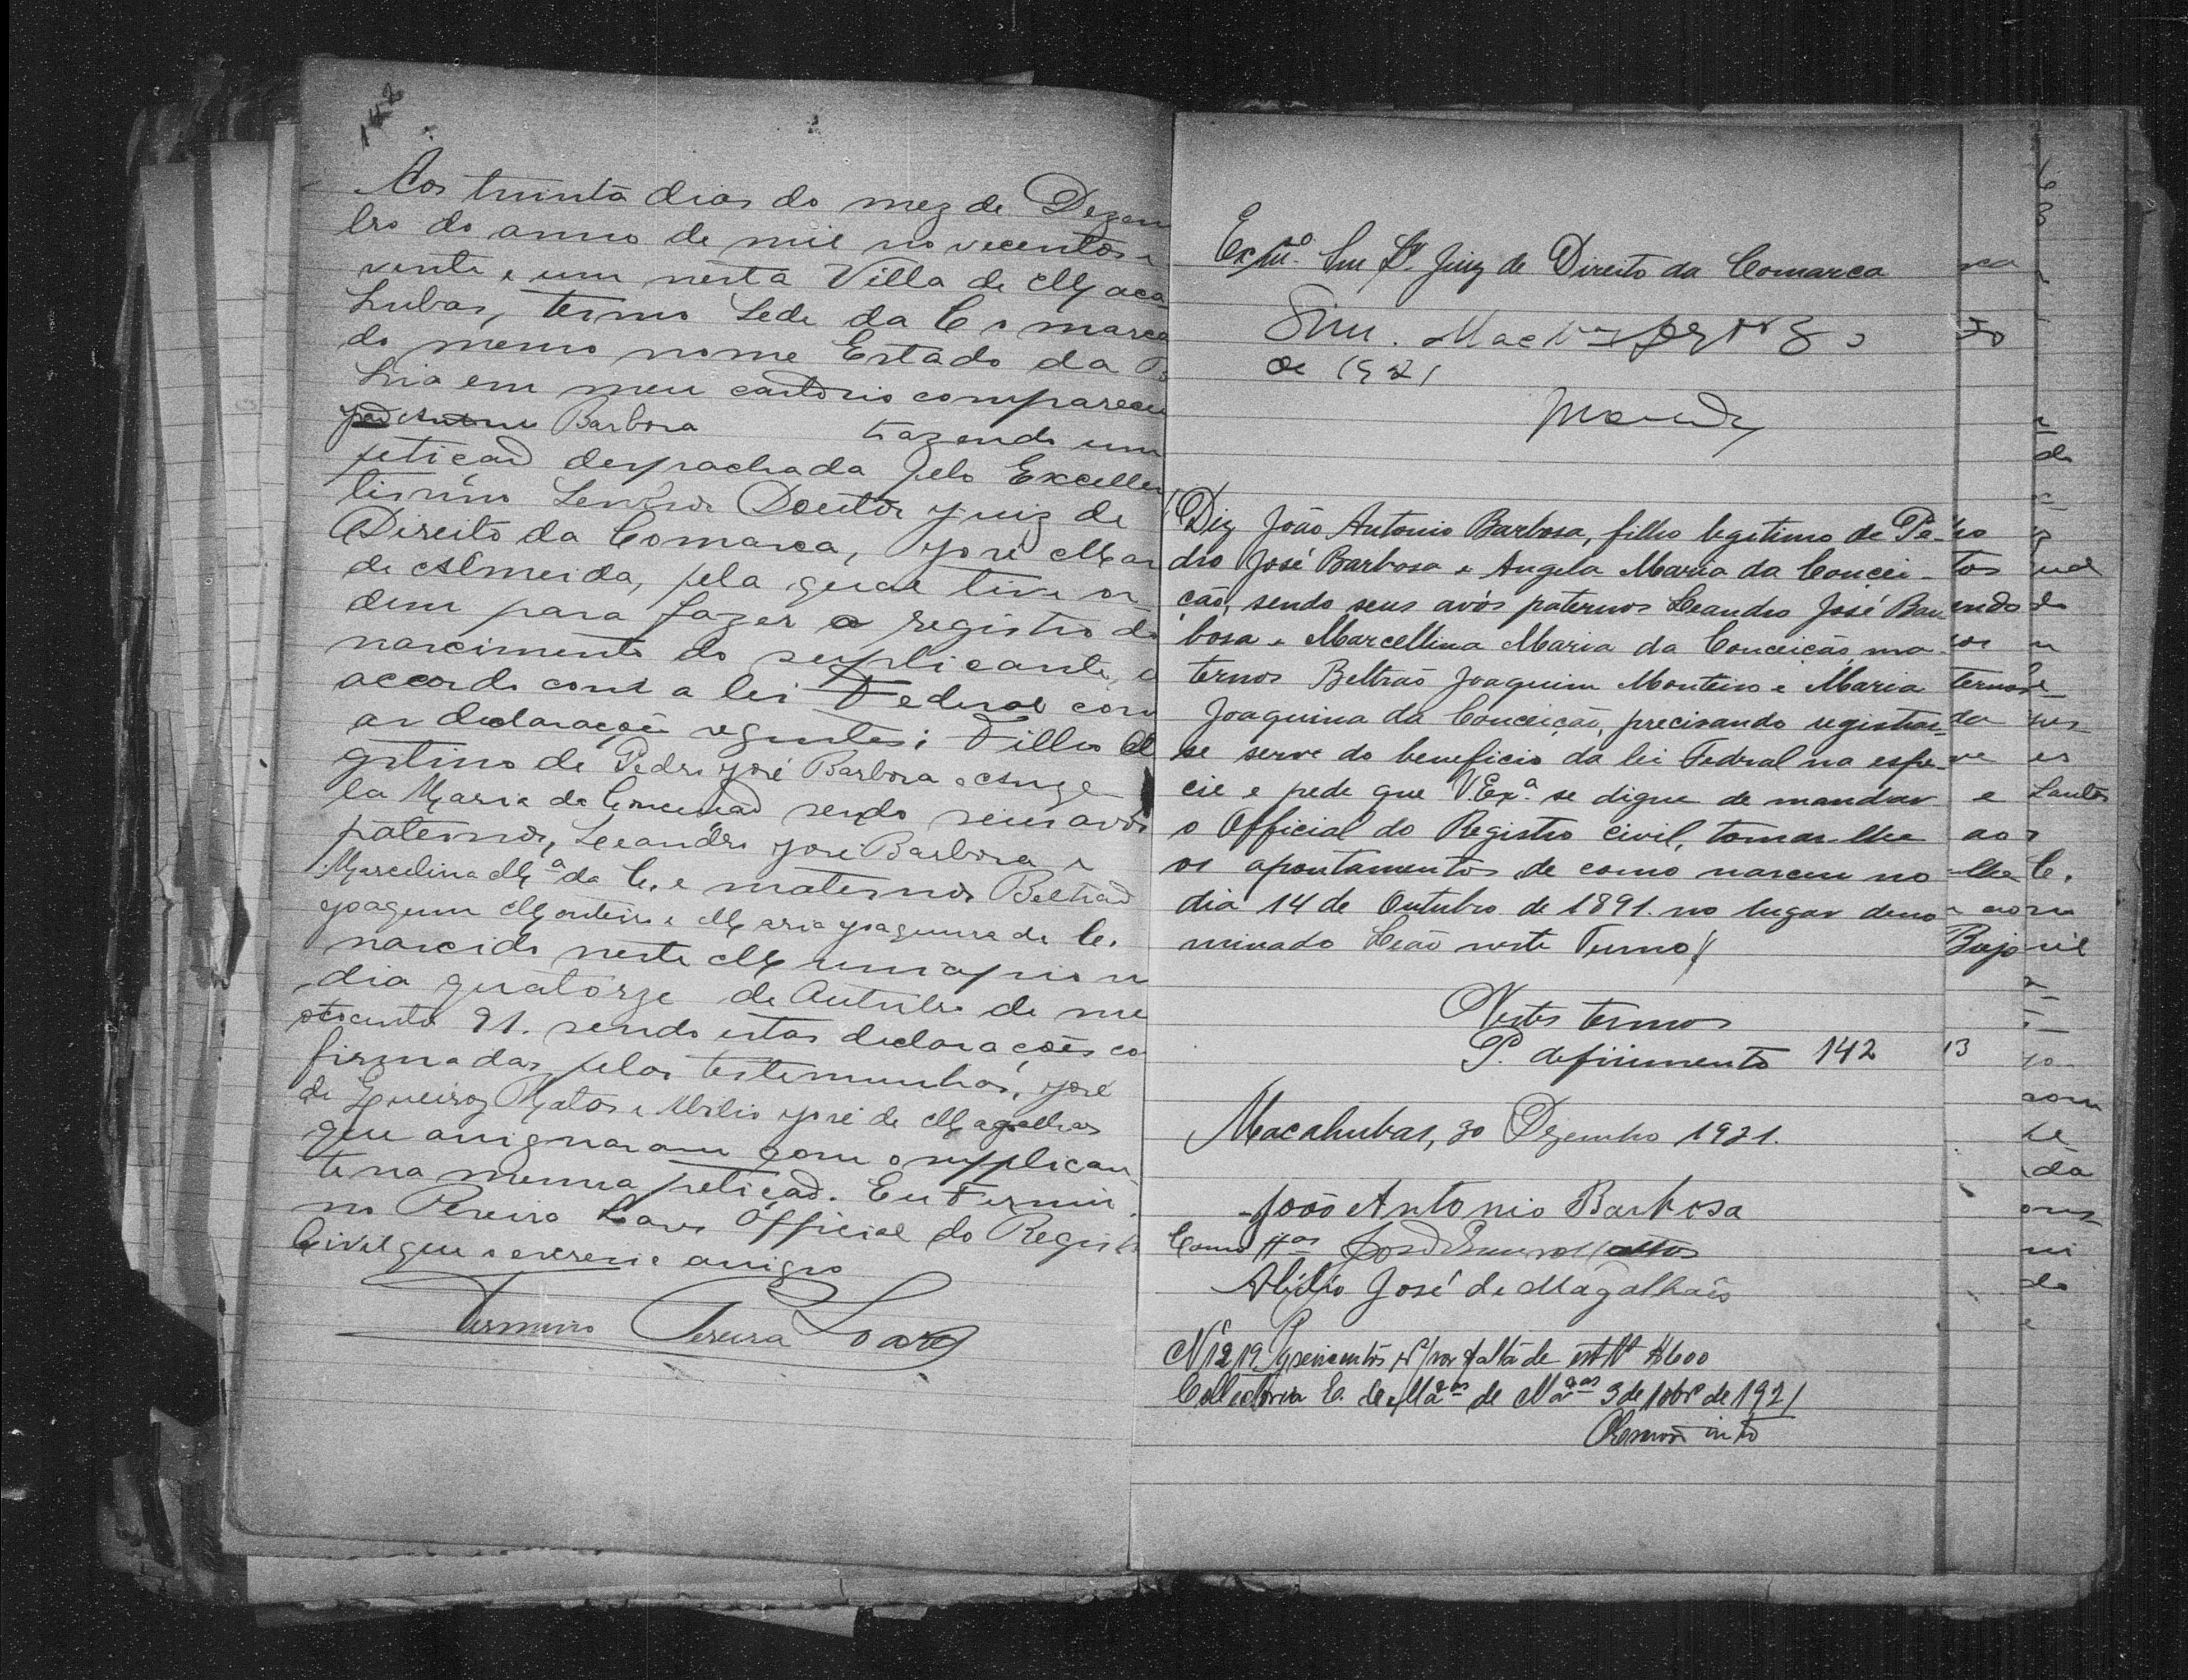 142
Aos trinta dias do mez de Dezem
bro do anno de mil novecentos e
vinte e um nesta Villa de Maca
hubas, termo Sede da Comarca
do mesmo nome Estado da B
hia em meu cartorio compareceu
Barbosa trazendo uma
petição despachada pelo Excellen
tissimo Senhor Doutor Juiz de
Direito da Comarca, José
de Almeida, pela qual tive or
dem para fazer o registro de
nascimento do supplicante, d
accordo com a lei Federal com
as declarações seguintes: Filho le
gitimo de Pedro José Barbosa e Ange
la Maria da Conceição sendo seus avós
paternos, Leandro José Barbosa e
Marcelina Mª da C. e maternos Beltrão
Joaquim Monteiro e Maria Joaquina da C.
nascido neste Municipio n
dia quatorze de Outubro de mil
oitocentos 91. sendo estas declarações co
firmadas pelas testemunhas, José
de Queiroz Matos e Abilio José de Magalhães
que assignaram com o supplican
te na mesma petição. Eu Firmi
no Pereira Soares Official do Registro
Civil que o escrevi e assigno
Firmino Pereira Soares
Exmº. Snr Dr. Juiz de Direito da Comarca
Sim.
de 1921
Diz João Antonio Barbosa, filho legitimo de Pe-
dro José Barbosa e Angela Maria da Concei-
ção, sendo seus avós paternos Leandro José Bar
bosa e Marcellina Maria da Conceição, ma-
ternos Beltrão Joaquim Monteiro e Maria
Joaquina da Conceição, precisando registrar-
se serve do beneficio da lei Federal na espe-
cie e pede que V. Exª. se digne de mandar
o Official do Registro civil, tomar-lhe
os apontamentos de como nasceu no
dia 14 de Outubro de 1891. no lugar deno
minado Leão neste Termo.
Nestes termos
P. deferimento 142
13
Macahubas, 30 Dezembro 1921.
João Antonio Barbosa
Como ttas
Abilio José de Magalhães
Nº 1219 por falta de
Collectoria de 1921